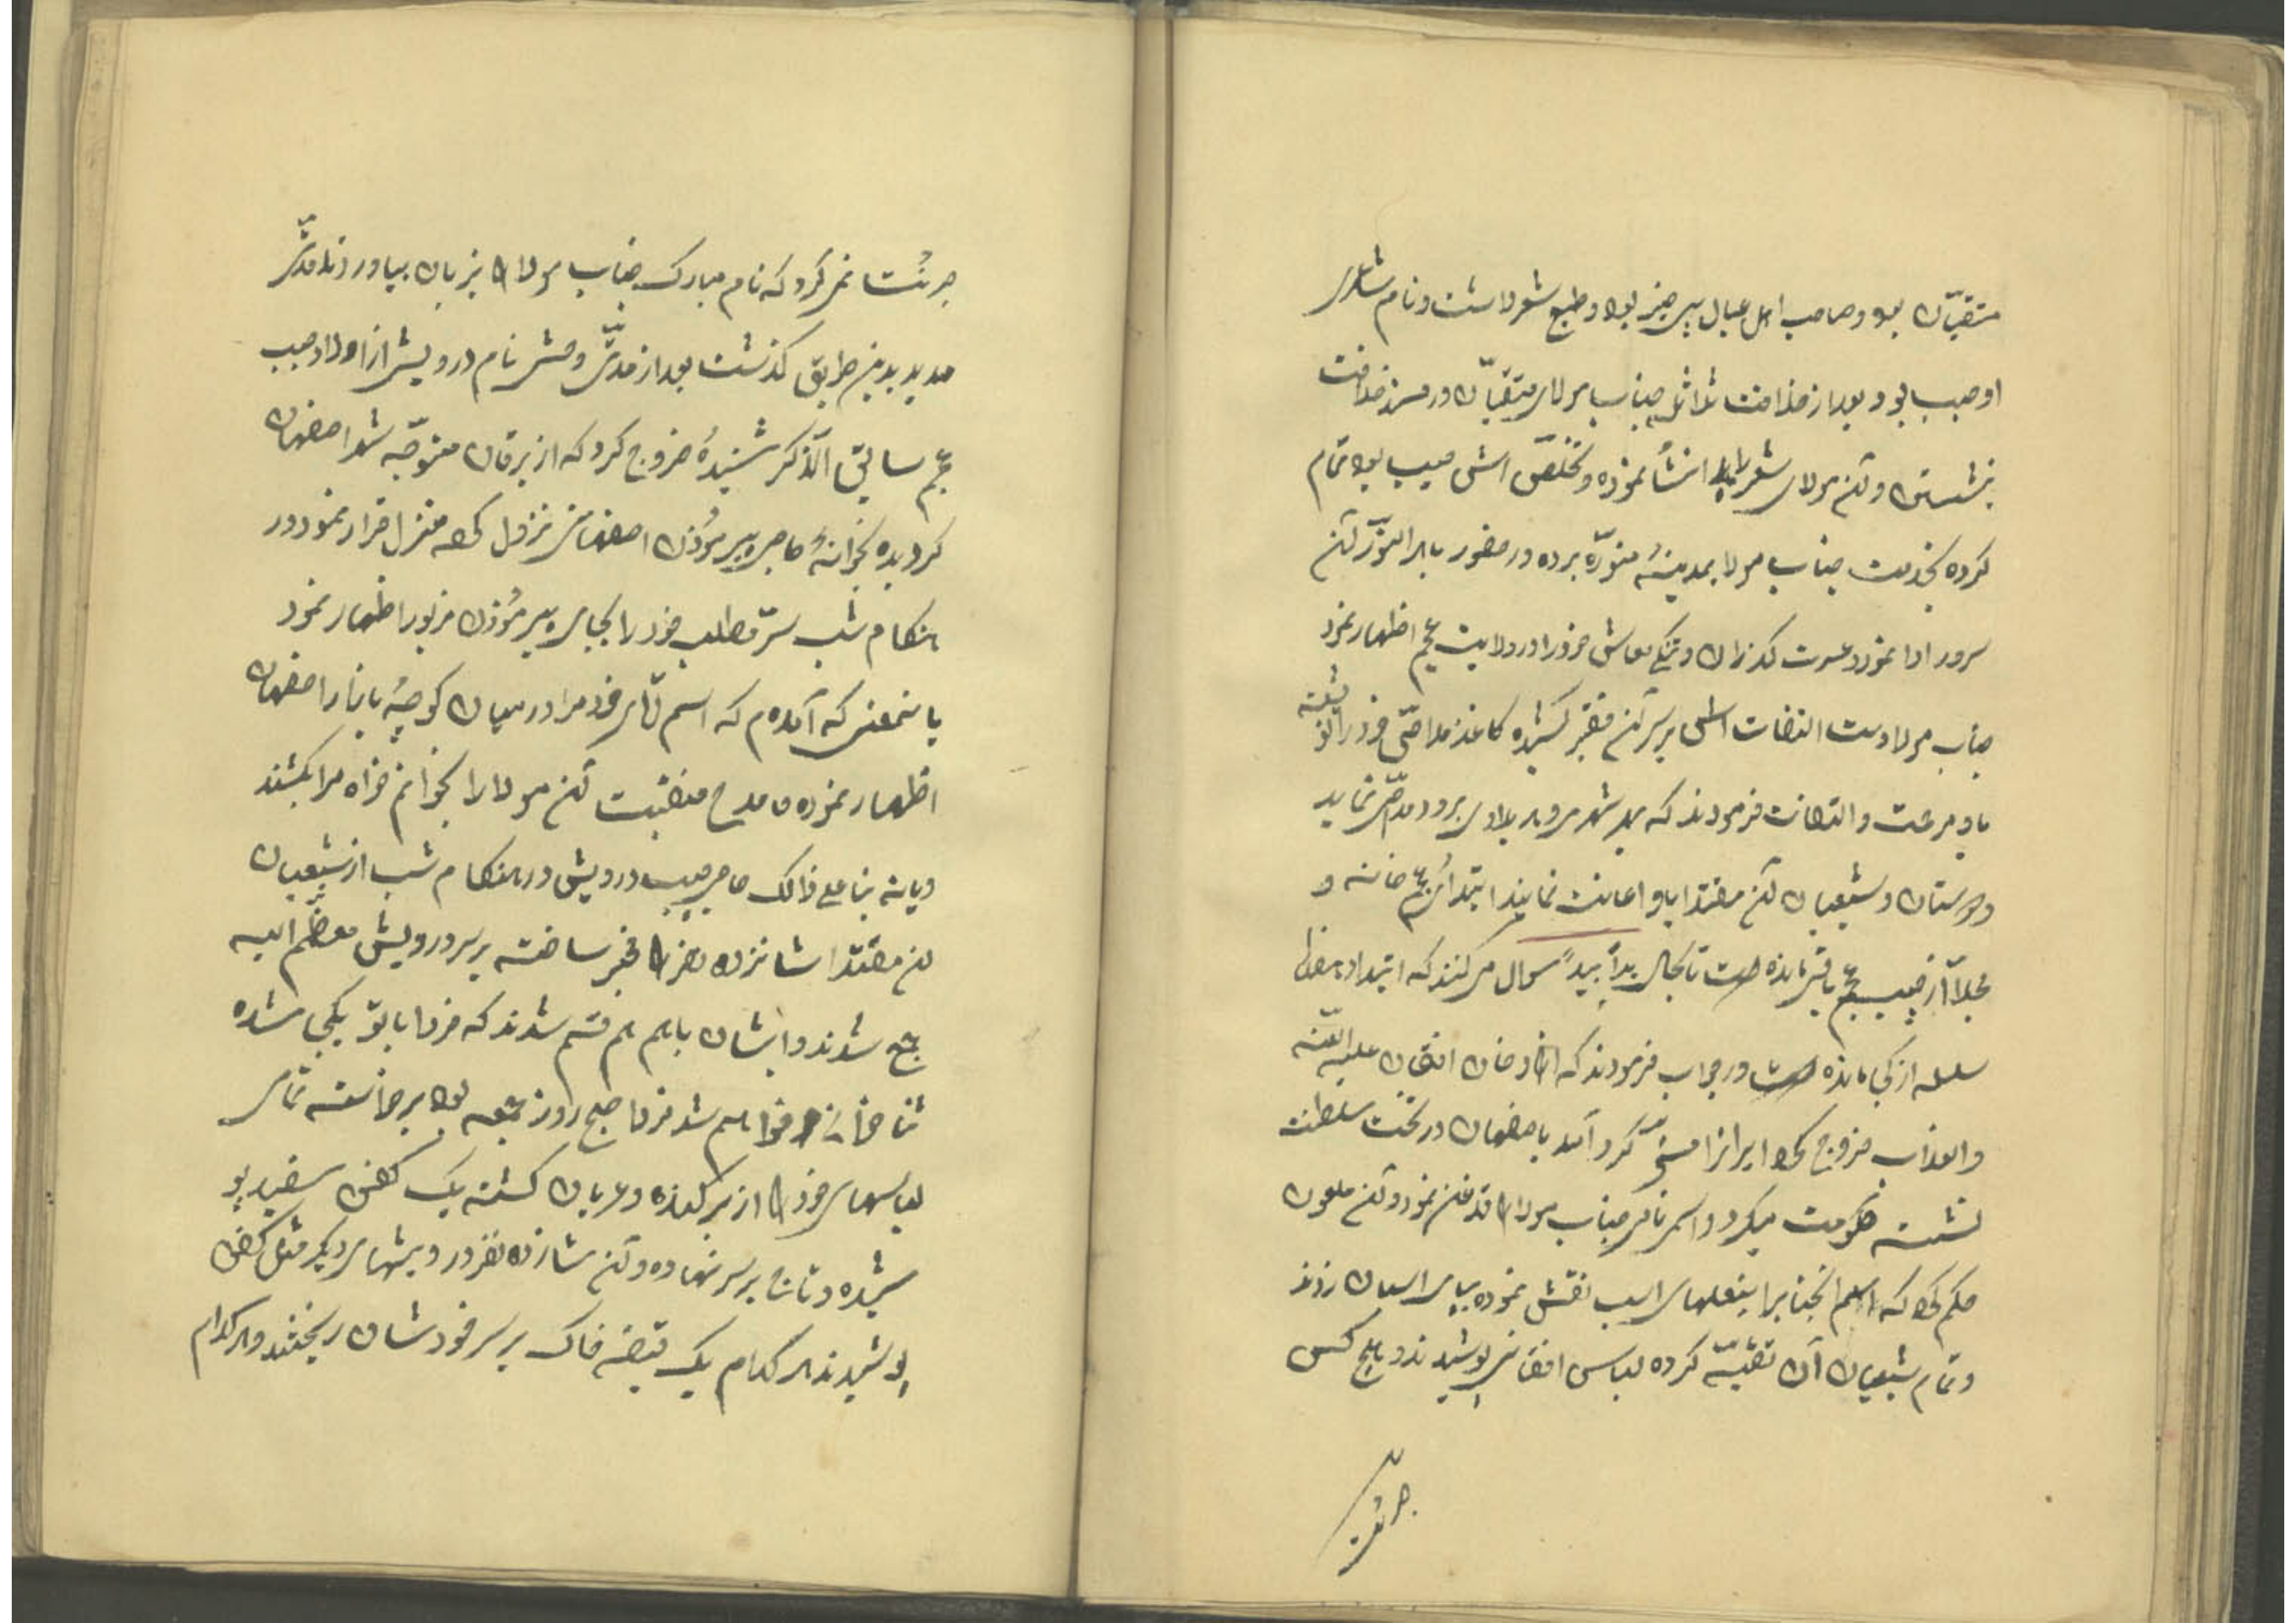 متقیان بود و صاحب اهل عیال بی چیز بود و طبع شعر داشت و نام شاعری
او حبیب بود بعد از خلافت ثلاثه جناب مولای متقیان در مسند خلافت
نشستن و آن مولای شعر را انشأ نموده و تخلّص اسمی حبیب بود تمام
کرده بخدمت جناب مولا بمدینهٔ منوّره برده در حضور باهر النّور آن
سرور ادا نمود و عسرت گذران و تنگی معاش خود را در ولایت عجم اظهار نمود
جناب مولا دست التفات اسمی بر سر آن فقیر کشیده کاغذ مداحّی خود را نوشته
باو مرحمت و التفات فرمودند که بهر شهری و هر بلادی برود مداحّی نماید
دوستان و شیعیان آن مقتدا باو اعانت نمایند ابتدای عجم خانه و
مجلا از حبیب عجم باقی مانده است تا بحال بدأ بیداً سوال می کنند که ابتدا و
سلسله از کی مانده است در جواب فرمودند که خان افغان علیه اللّعنه
والعذاب خروج کرد ایرانرا مسخّر کرد آمد باصفهان در تخت سلطنت
نشسته حکومت میکرد و اسم نامی جناب مولا را قدغن نمود و آن ملعون
حکم کرد که اسم آنجنابرا بنعلهای اسب نقش نموده بپای اسبان زدند
و تمام شیعیان آن تقیّه کرده لباس افغانی پوشیدند و هیچ کس
جرئت
جرئت نمی کرد که نام مبارک جناب مولا را بزبان بیاورند مدّتی
مدید بدین طریق گذشت بعد از مدّتی نام درویشی از اولاد حبیب
عجم سابق الذّکر شنیده خروج کرد که از متوجّه شد اصفهان
گردیده بخوانهٔ حاجی پیر مؤذن اصفهانی نزول کرده منزل قرار نمود در
هنگام شب سرّ مطلب خود را بحاجی پیر مؤذن مزبور اظهار نمود
باینمعنی که آمدم که اسم آقای خود مرا در میان کوچهٔ بازار اصفهان
اظهار نموده مدح منقبت آن مولا را بخوانم خواه مرا بکشند
و یا نه بنا علی ذالک حاجی حبیب درویش در هنگام شب از شیعیان
آن مقتدا شانزده نفر را مخبر ساخته بر سر درویش معظّم الیه
جمع شدند و ایشان باهم هم قسم شدند که فردا با تو یکجا شده
ثنا خوانی خواهیم شد فردا صبح روز جمعه بود برخاسته تمامی
لباسهای خود را از بر کنده و عریان گشته یک کفن سفید پو
شیده و تاج بر سر نهاده و آن شانزده نفر درویشهای دیگر مثل کفن
پوشیدند هر کدام یک قبضه خاک بر سر خودشان ریختند و هر کدام